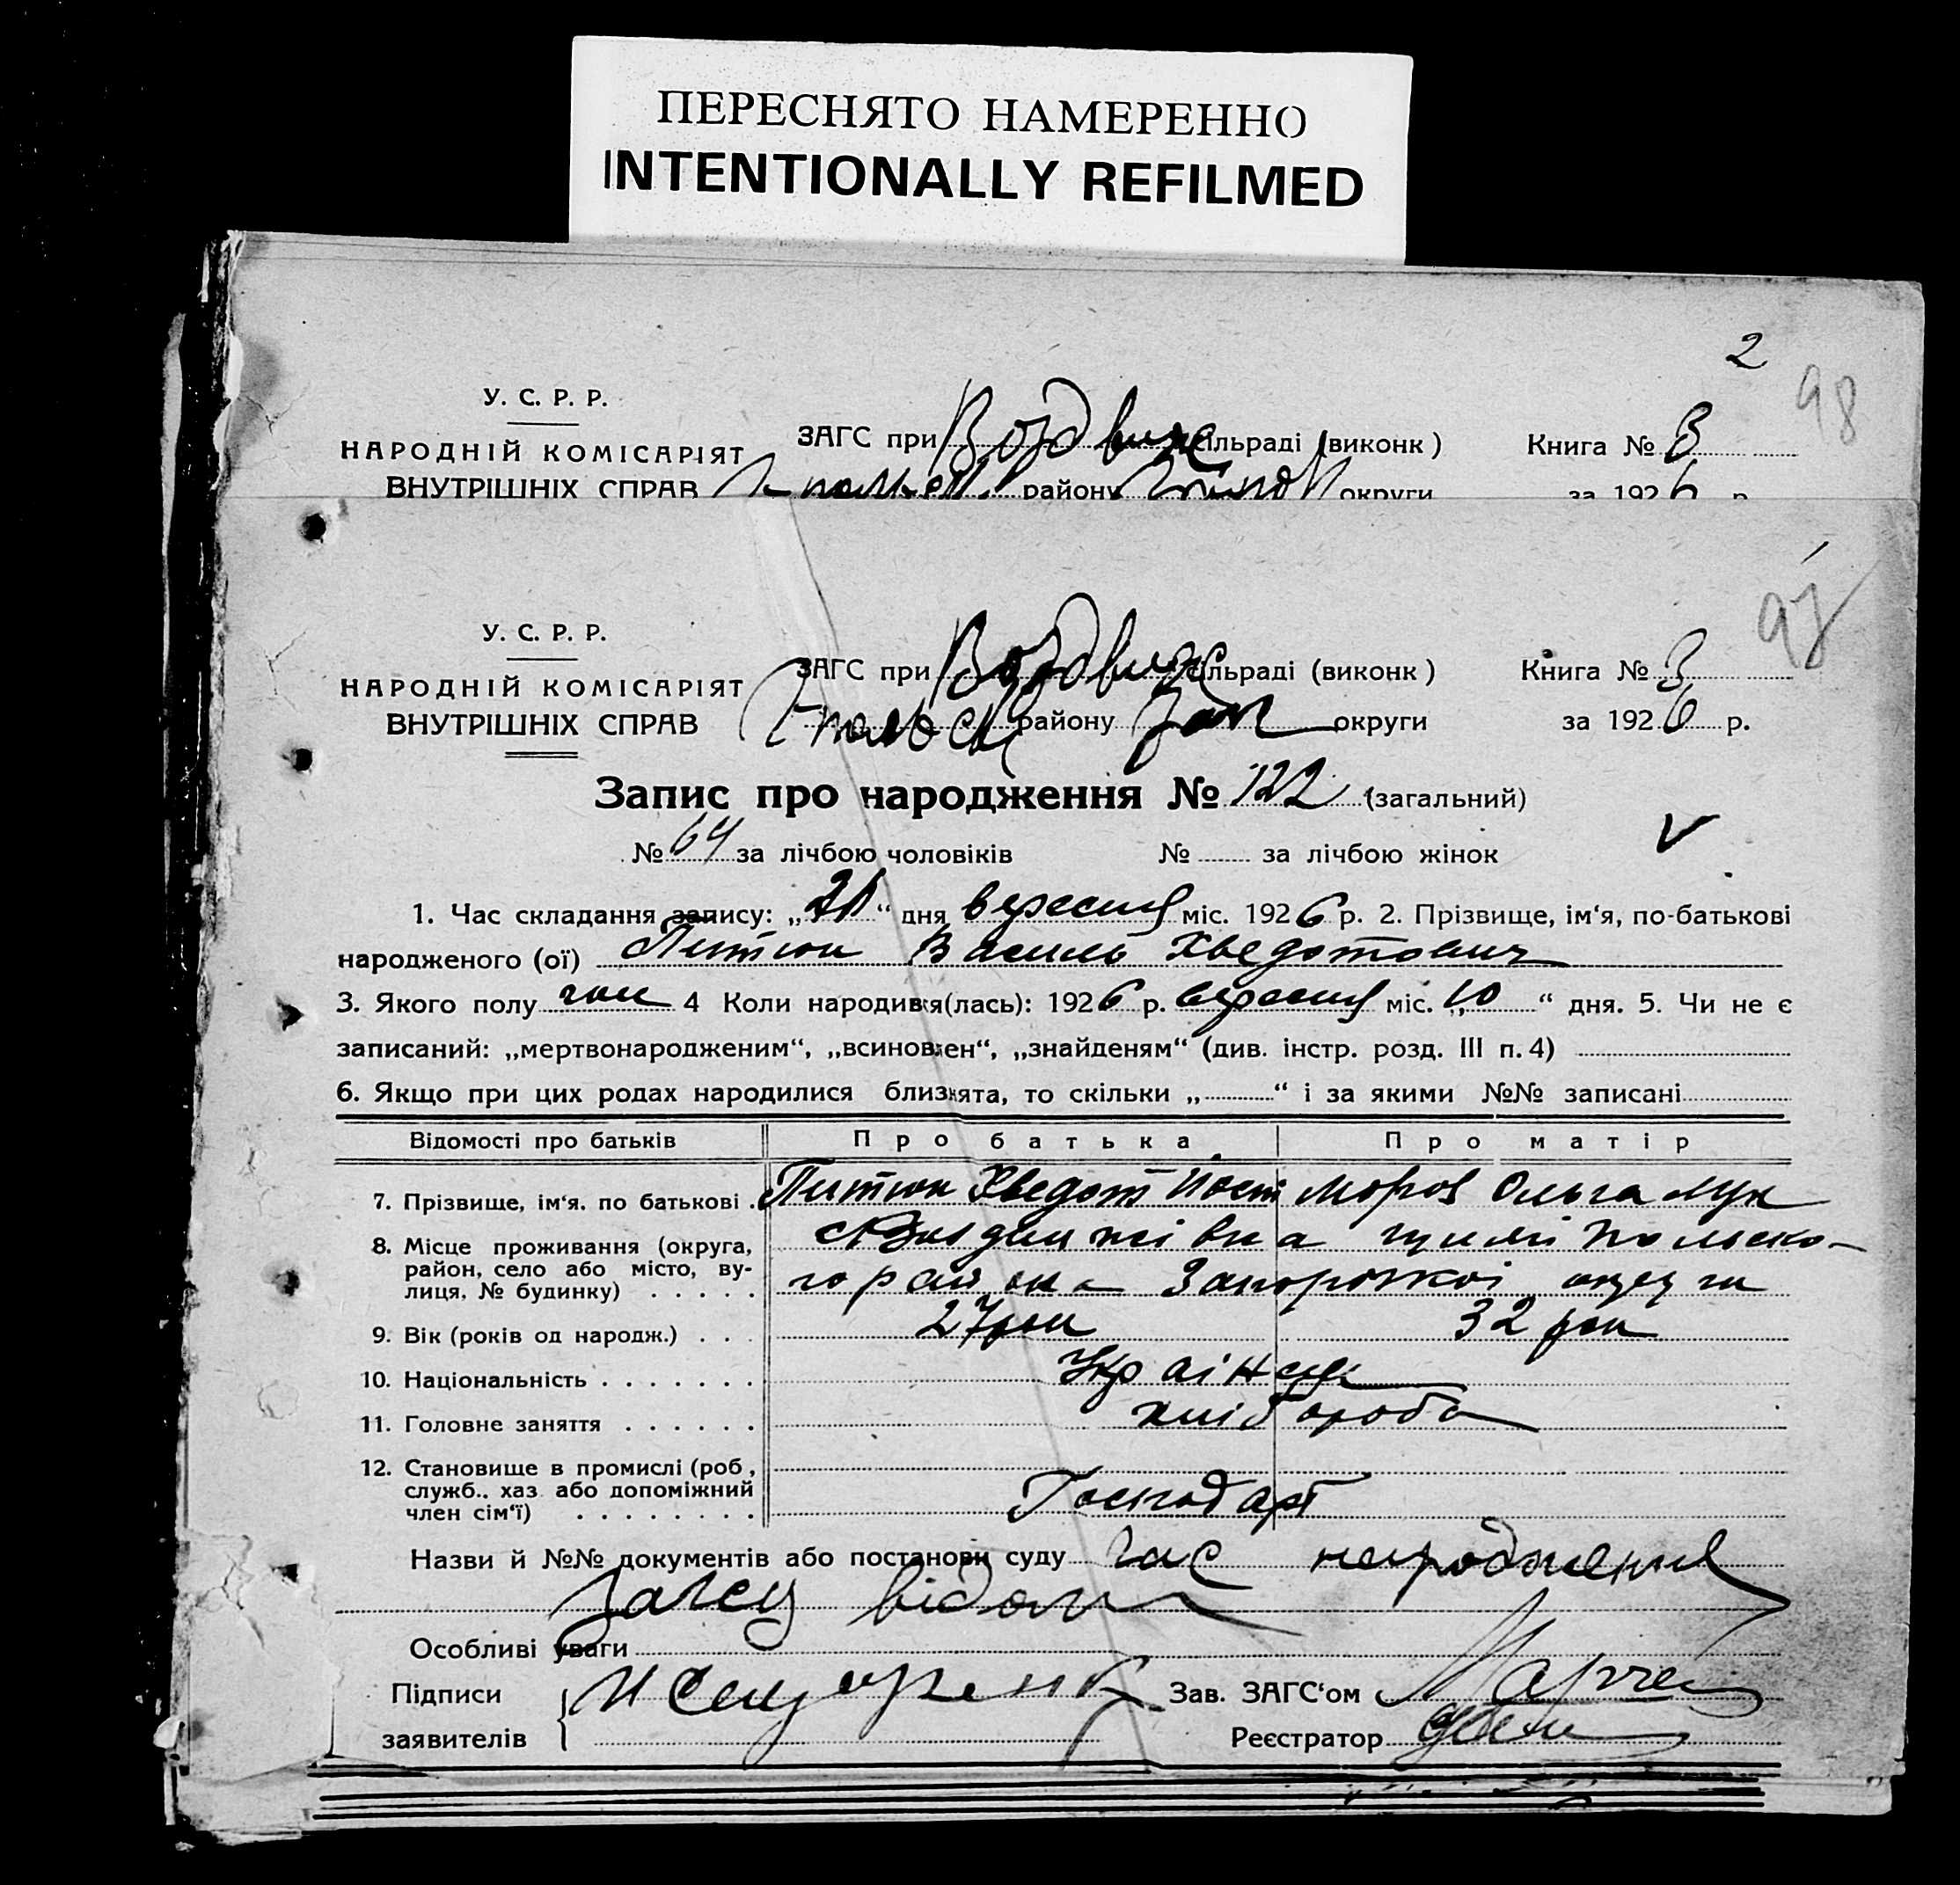 ПЕРЕСНЯТО НАМЕРЕННО
INTENTIONALLY REFILMED
2
98
У. С. Р. Р.
НАРОДНІЙ КОМІСАРІЯТ
ВНУТРІШНІХ СПРАВ
ЗАГС при Воздвиж сільраді (виконк)
району округи
Книга № 3
за 1926 р.
97
У. С. Р. Р.
НАРОДНІЙ КОМІСАРІЯТ
ВНУТРІШНІХ СПРАВ
ЗАГС при Воздвиж сільраді (виконк)
Г-польськ району Зап округи
Книга № 3
за 1926 р.
Запис про народження № 122 (загальний)
№ 64 за лічбою чоловіків № за лічбою жінок
1. Час складання запису: „ “ дня вересня міс. 1926 р. 2. Прізвище, ім‘я, по-батькові
народженого (ої) Питюн Василь Хведотович
3. Якого полу чол 4 Коли народився(лась): 1926 р. вересня міс. „10“ дня. 5. Чи не є
записаний: „мертвонародженим“, „всиновлен“, „знайденям“ (див. інстр. розд. III п. 4)
6. Якщо при цих родах народилися близнята, то скільки „ “ і за якими №№ записані
Відомості про батьків Про батька Про матір
7. Прізвище, ім‘я. по батькові . Питюн Хведот Ольга Лук
8. Місце проживання (округа, район, село або місто, вулиця, № будинку) . . . . . с Воздвижівка гуляйпольсько-
го района Запоріжкоі округи
9. Вік (років од народж.) . . . 27 рок 32 рок
10. Національність . . . . . . . Українці
11. Головне заняття . . . . . . хлібороби
12. Становище в промислі (роб, служб., хаз. або допоміжний член сім‘ї) . . . . . . . . Господарі
Назви й №№ документів або постанови суду час народження
загсу відом
Особливі уваги
Підписи
заявителів
Зав. ЗАГС‘ом
Реєстратор